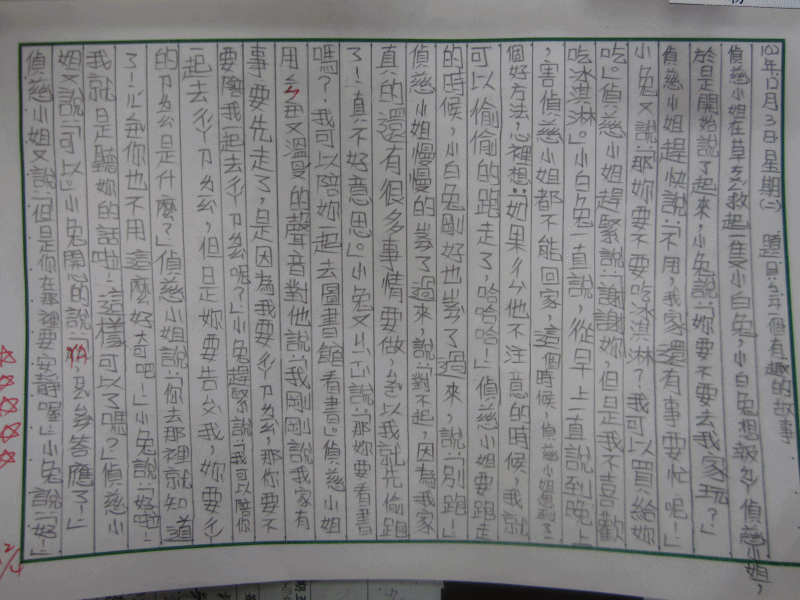 102年12月3日星期(二) 題目ㄕˋ一個有趣的故事
偵慈小姐在草ㄊㄤˊ救起一隻小白兔,小白兔想報ㄉㄚˊ偵慈小姐,
於是開始說了起來,小兔說:「妳要不要去我家玩?」
偵慈小姐趕快說:「不用,我家還有事要忙呢!」
小兔又說:「那妳要不要吃冰淇淋?我可以買給妳
吃。」偵慈小姐趕緊說:「謝謝妳,但是我不喜歡
吃冰淇淋。」小白兔一直說,從早上一直說到晚上
,害偵慈小姐都不能回家,這個時候,偵慈小姐想到了一
個好方法,心裡想:「如果ㄔㄣˋ他不注意的時候,我就
可以偷偷的跑走了,哈哈哈!」偵慈小姐要跑走
的時候,小白兔剛好也ㄓㄨㄟ了過來,說:「別跑!」
偵慈小姐慢慢的ㄓㄨㄢˇ了過來,說:「對不起,因為我家
真的還有很多事情要做,ㄙㄨㄛˇ以我就先偷跑
了!真不好意思。」小兔又ㄗㄞˋ說:「那妳要看書
嗎?我可以陪妳一起去圖書館看書。偵慈小姐
用ㄑㄧㄥ又溫的聲音對他說:「我剛剛說我家有
事要先走了,是因為我要ㄔㄌㄠ,那你要不
要陪我一起去ㄔㄌㄠ呢?」小兔趕緊說:「我可以陪你
一起去ㄔㄌㄠ,但是妳要告ㄙㄨˋ我,妳要ㄔ
的ㄌㄠ是什麼?」偵慈小姐說:「你去那裡就知道
了!ㄅㄨˋ過你也不用這麼好奇吧!」小兔說:「好啦!
我就是聽妳的話啦!這樣可以了嗎?」偵慈小
姐又說:「可以。」小兔開心的說:「ㄋㄚˋ答應了!」
偵慈小姐又說:「但是你在那裡要安靜喔!」小兔說:「好!」